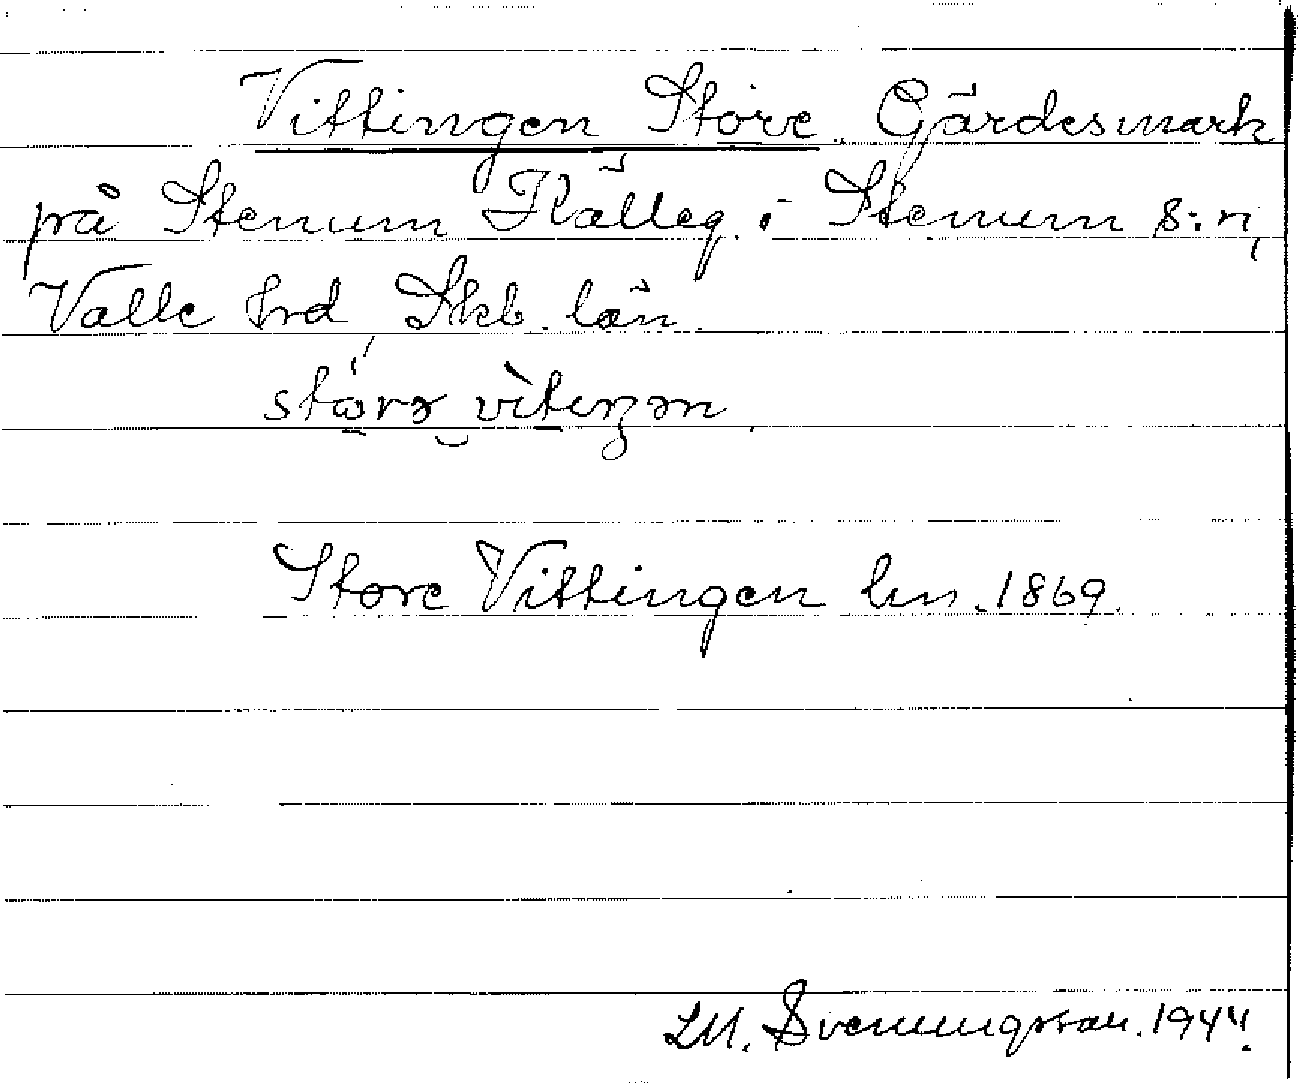 Vittingen Store. Gärdesmark
på Stenum Källeg. i Stenum s:n,
Valle hrd Skb. län.
stǫ́rə vìteŋən
Store Vittingen lm. 1869.
LM. Svenungsson. 1944.